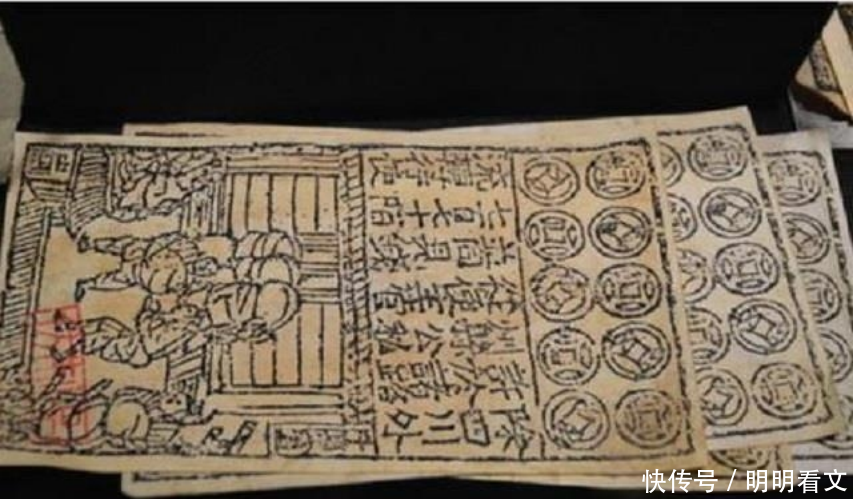 除四川外
許於諸路
州縣公私
從便主管
並同見錢
七百七十陌
流轉行使
快传号 / 明明看文